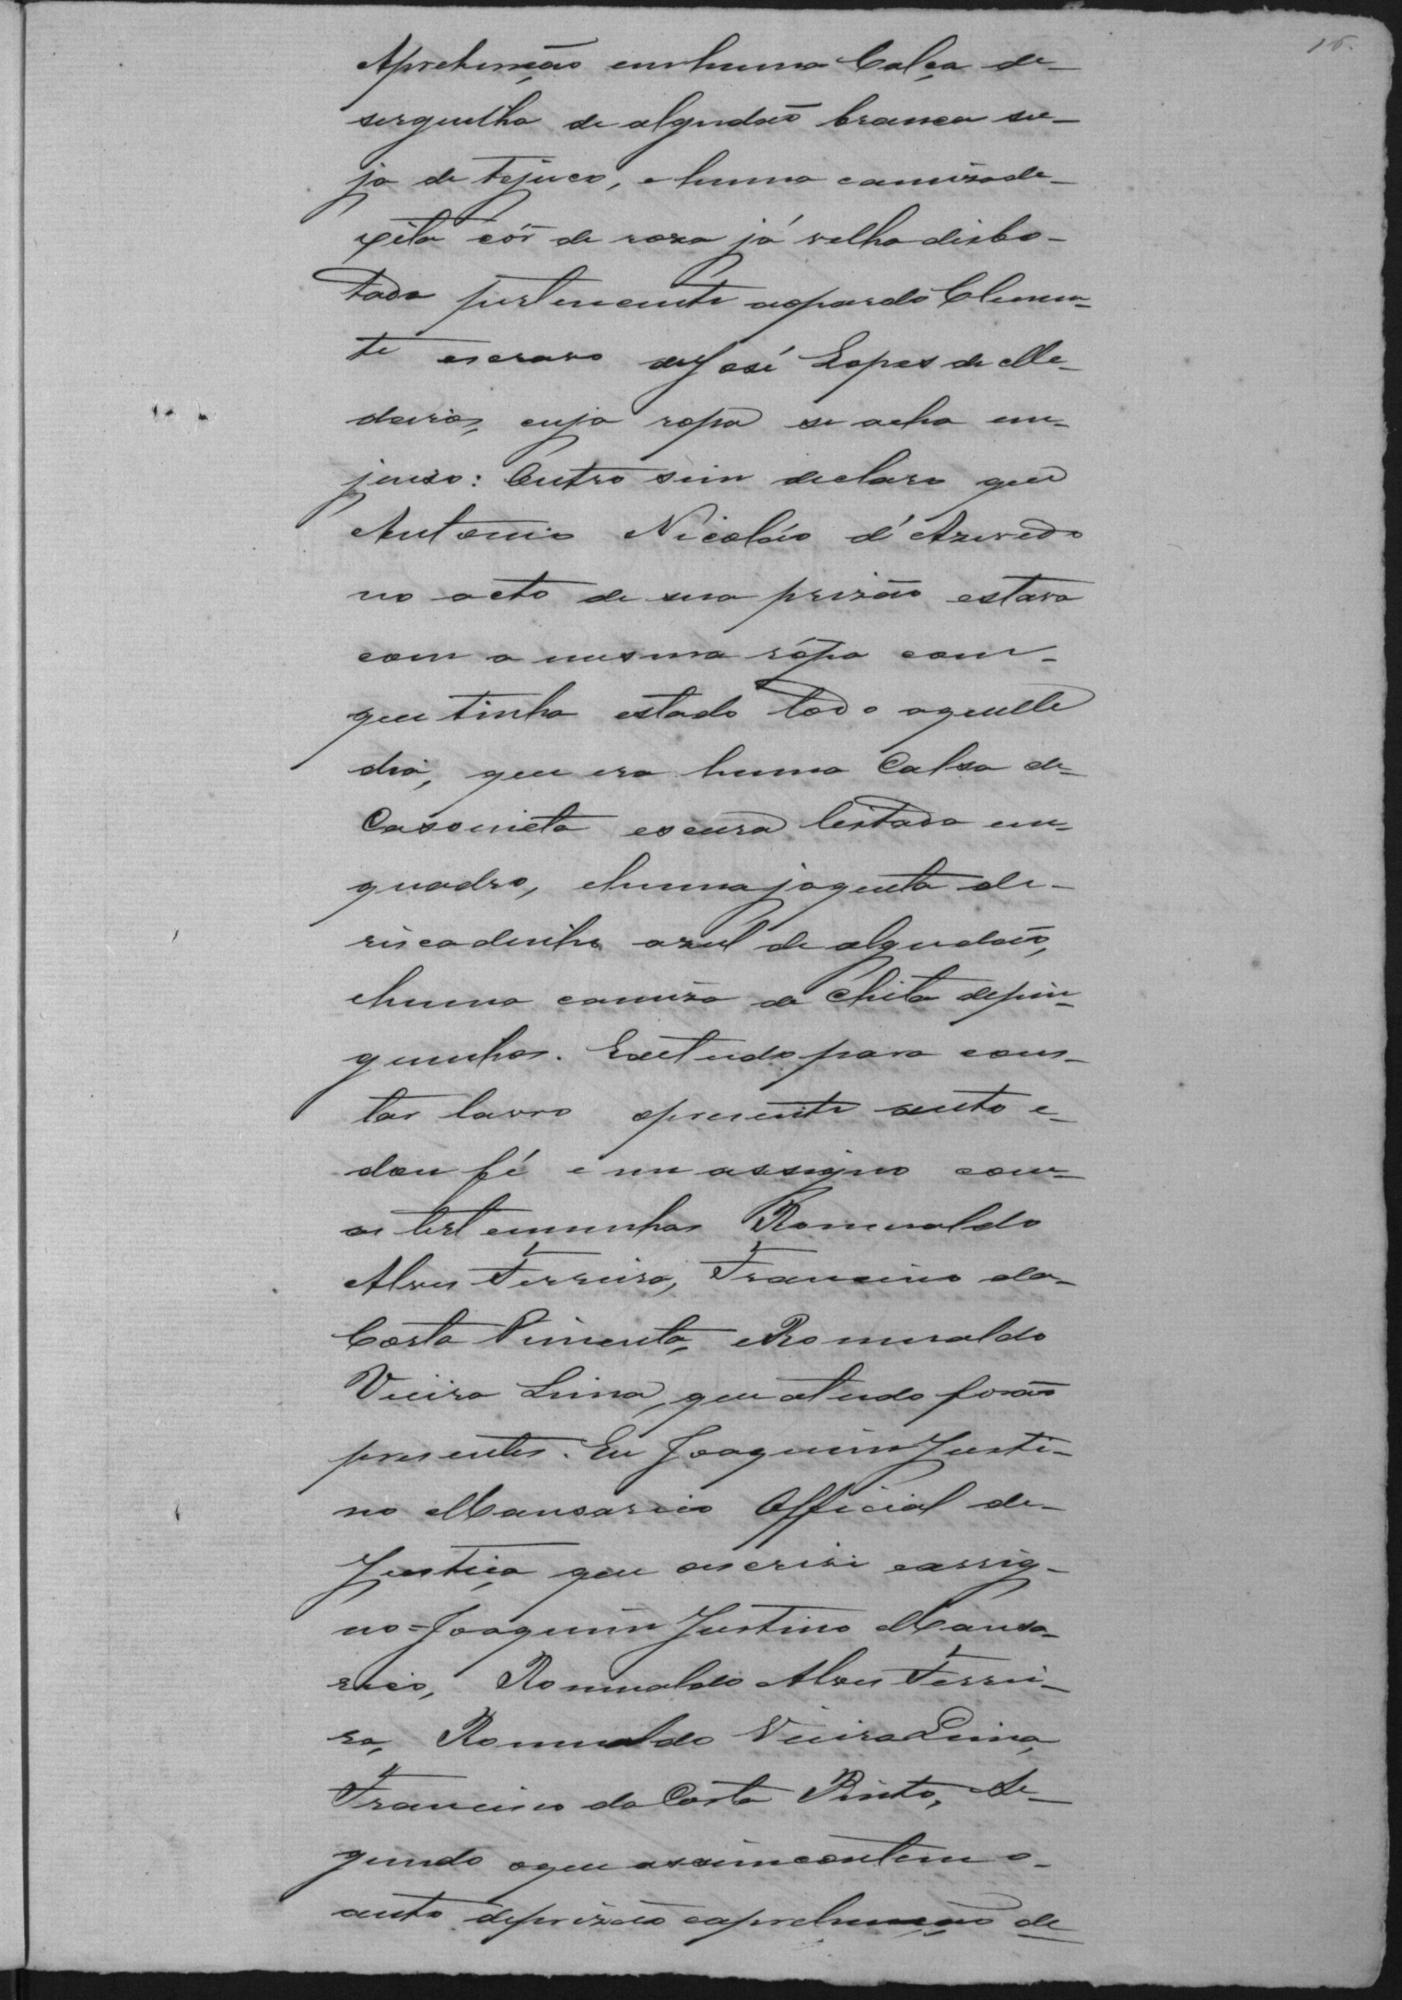 16.
Aprehenção em huma Calça de
serguelha de algudão branca su-
ja de tejuco, e huma camiza de
xita côr de roza já velha disbo-
tada pertencente ao pardo Clemen-
te escravo de José Lopes de Me-
deiros, cuja ropa se acha em
juizo: Outro sim declaro que
Antonio Nicoláo d'Azevedo
no acto de sua prizão estava
com a mesma rópa com
que tinha estado todo aquelle
dia, que era huma Calsa de
Casemieta escura listada em
quadro, e huma jaqueta de
riscadinho azul de algudão,
e huma camiza de Chita de pin-
guinhos. E de tudo para cons-
tar lavro o presente auto e
dou fé e me assigno com
as testemunhas Romualdo
Alves Ferreira, Francisco da
Costa Pimenta, e Romualdo
Vieira Lima, que a tudo forão
presentes. Eu Joaquim Justi-
no Mansarico Official de
Justiça que o escrivi e assig-
no = Joaquim Justino Mansa-
rico, Romualdo Alves Ferrei-
ra, Romualdo Vieira Lima,
Francisco da Costa Pinto, Se-
gundo o que assim contem o
auto de prizão e aprehenção de